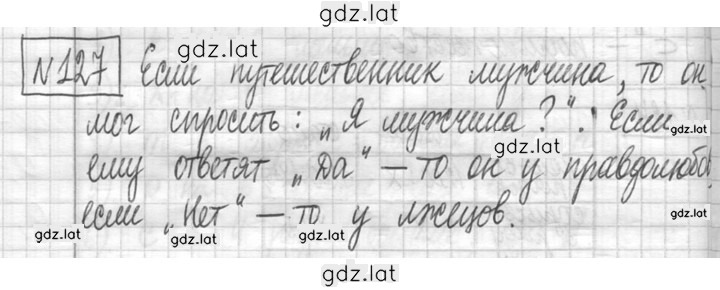 gdz.lat
gdz.lat
№127 Если путешественник мужчина, то он
мог спросить: „Я мужчина?“. Если
gdz.lat
gdz.lat
ему ответят „Да“ – то он у правдолюбов,
если „Нет“ – то у лжецов.
gdz.lat
gdz.lat
gdz.lat
gdz.lat
gdz.lat